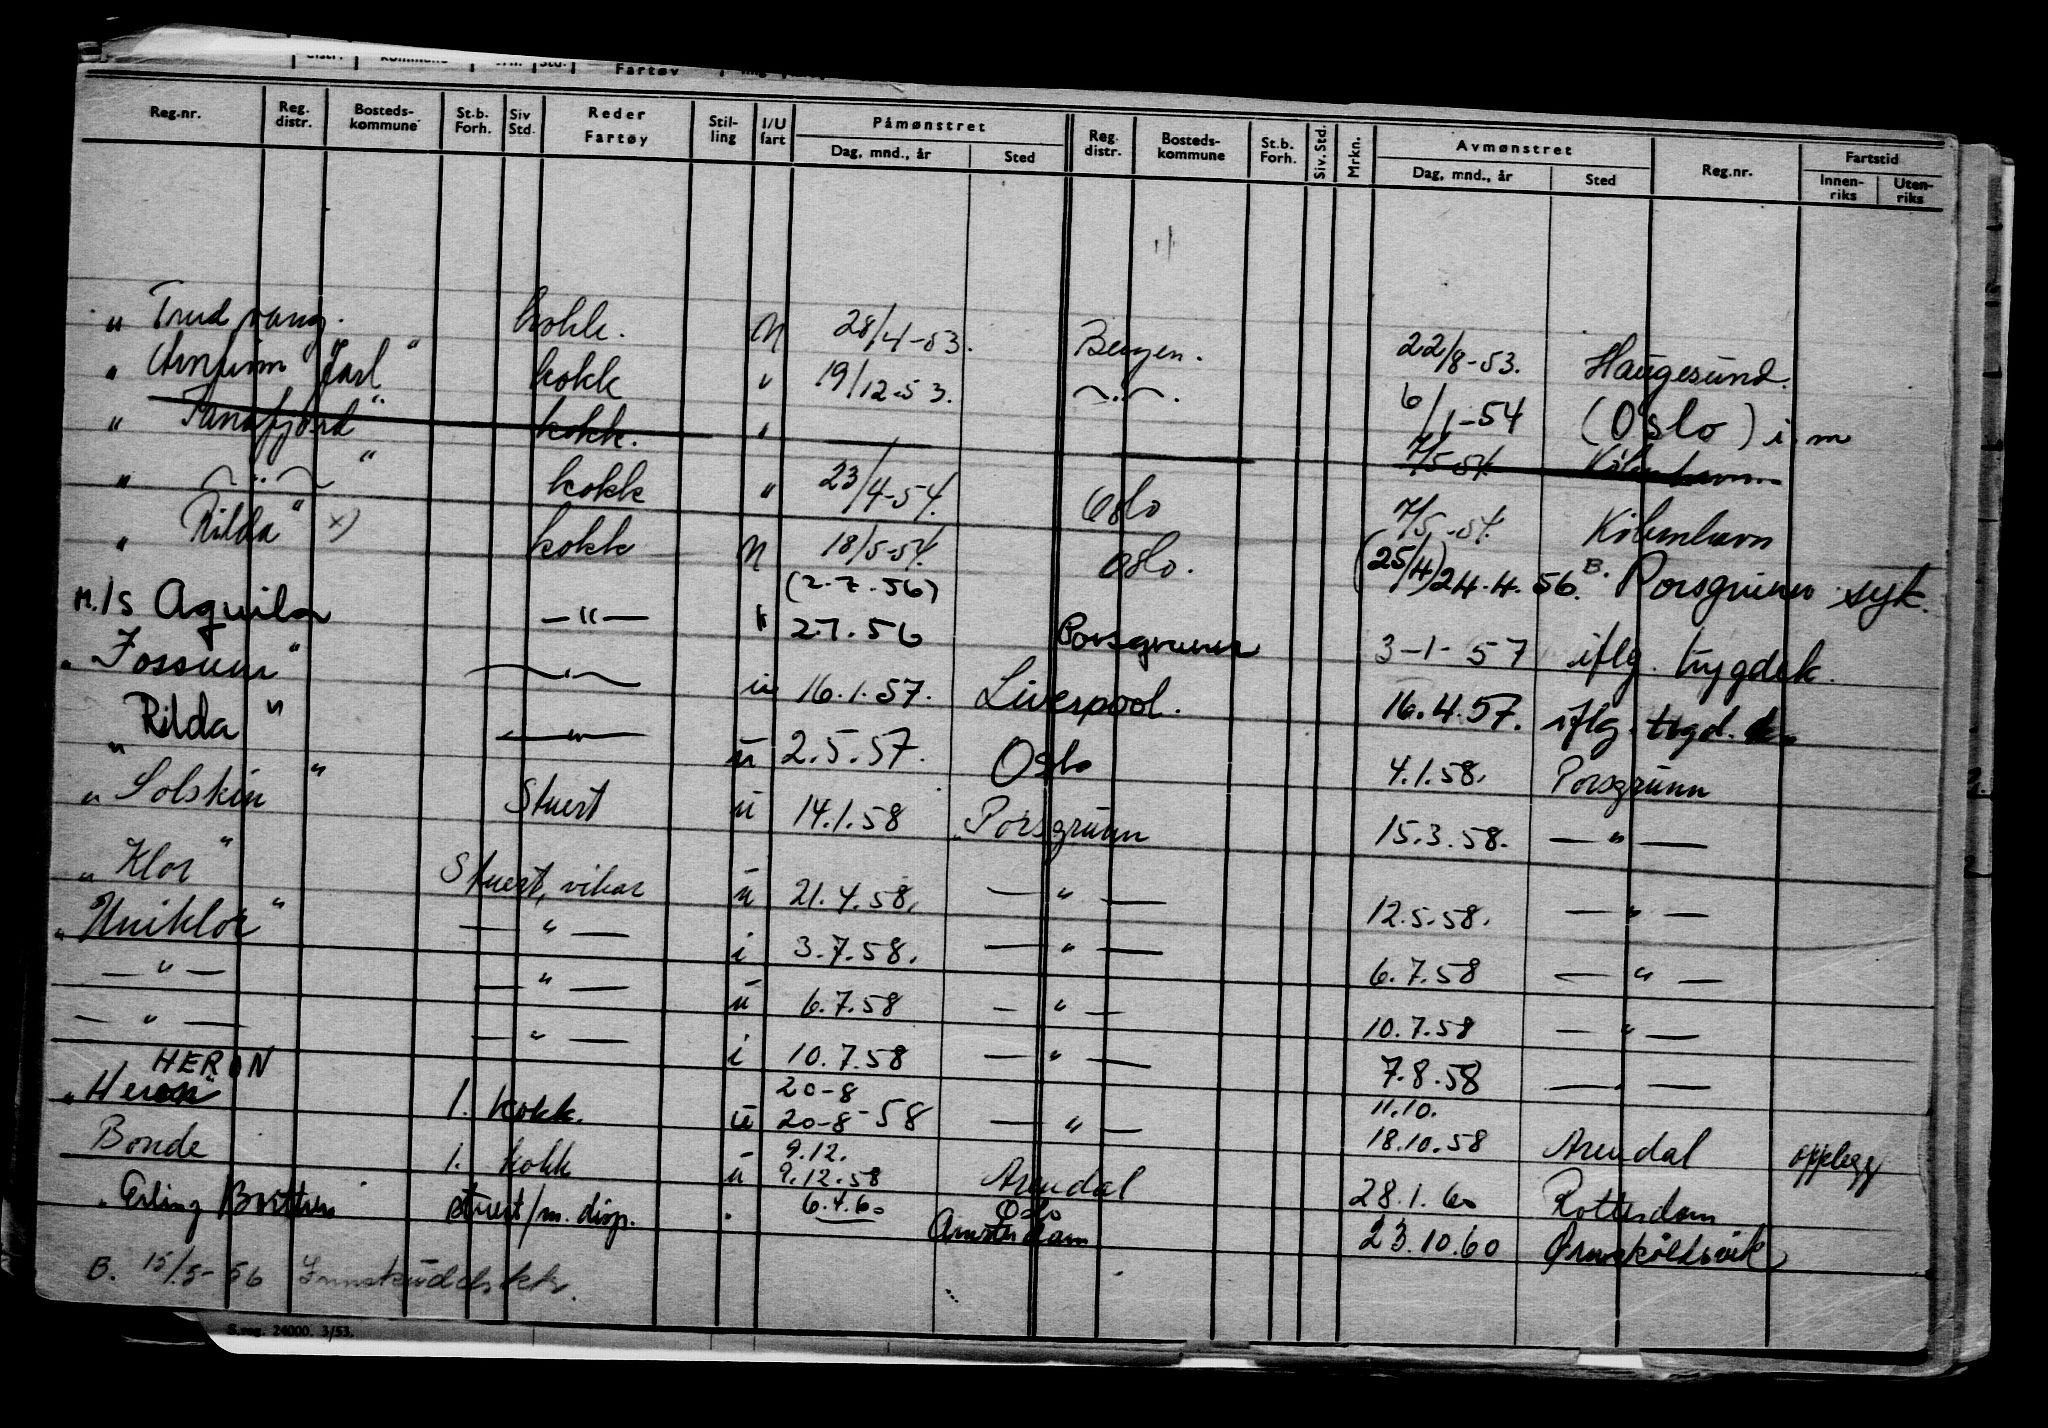 distr. kommune Std. Fartøy
Reg.nr. Reg. distr. Bosteds-kommune St.b. Forh. Siv Std. Reder Fartøy Stil-ling I/U fart Påmønstret Dag, mnd., år Sted Reg. distr. Bosteds-kommune St.b. Forh. Siv. Std. Mrkn. Avmønstret Dag, mnd., år Sted Reg.nr. Fartstid Innen-riks Uten-riks
" Trudvang. kokk. N 28/4-53. Bergen. 22/8-53. Haugesund.
" Jarl" kokk " 19/12-53. —"—. 6/1-54 (Oslo) i.m
" Tanafjord" kokk. " — — 7/5-54 København
" —"— " kokk " 23/4-54. Oslo 7/5-54. København
" Rilda" x) kokk N 18/5-54. Oslo. (25/4) 24.4.56. B. Porsgrunn syk.
(2.7.56)
M/S Aquila —"— " 2.7.56 Porsgrunn 3-1-57 iflg. trygdek.
" Fossum" —"— u 16.1.57. Liverpool. 16.4.57. iflg. tygd. k.
" Rilda" —"— u 2.5.57. Oslo 4.1.58. Porsgrunn
" Solskin" Stuert u 14.1.58 Porsgrunn 15.3.58. —"—
" Klor" Stuert, vikar u 21.4.58. —"— 12.5.58. —"—
" Uniklor" —"— i 3.7.58. —"— 6.7.58 —"—
—"— —"— u 6.7.58 —"— 10.7.58 —"—
—"— —"— i 10.7.58 —"— 7.8.58 — —
HERON 20-8 11.10.
" Heron" 1. kokk. u 20-8-58 —"— 18.10.58 Arendal opplegg
9.12.
Bonde 1. kokk u 9.12.58 Arendal 28.1.60 Rotterdam
6.4.60 Oslo
" Erling Borthen stuert/m. disp. " Amsterdam 23.10.60 Ørnskøldsvik
B. 15/5-56 Innskuddskk.
S.reg. 24000. 3/53.